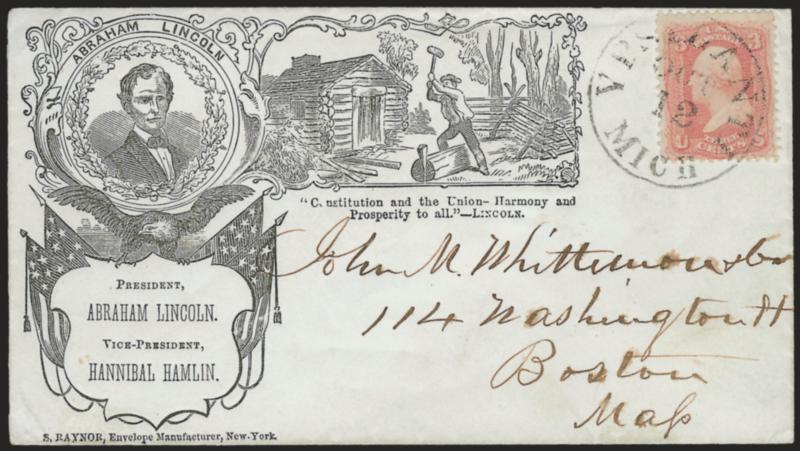 ABRAHAM LINCOLN
"Constitution and the Union—Harmony and
Prosperity to all."—LINCOLN.
PRESIDENT,
ABRAHAM LINCOLN.
VICE-PRESIDENT,
HANNIBAL HAMLIN.
S. RAYNOR, Envelope Manufacturer, New-York.
YPSILANTI
OCT
12
MICH
U S
3 3
CENTS
John M. Whittemore & Co
114 Washington St
Boston
Mass